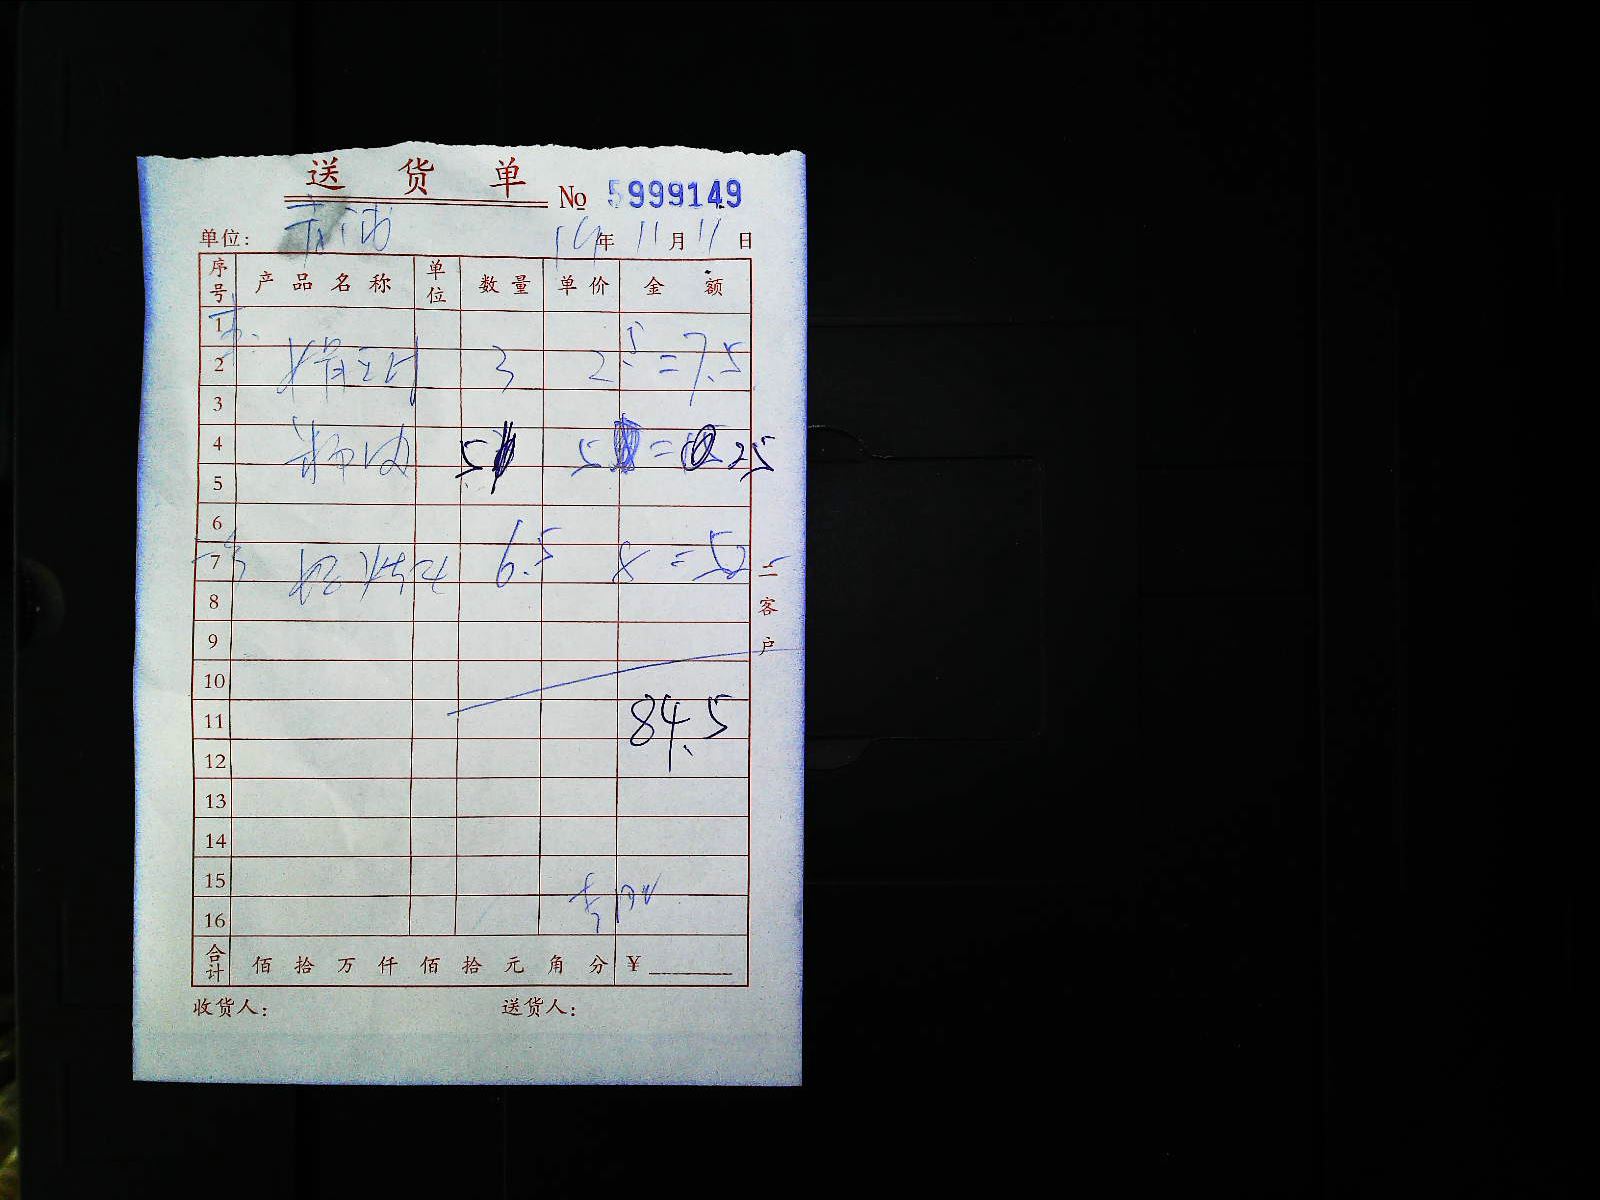 送货单
No 5999149
单位: 14年 11月 11日
序号 产品名称 单位 数量 单价 金额
1
2 3 2.5 = 7.5
3
4 5 5 = 25
5
6
7 6.5 8 = 52
8
9
10
11 84.5
12
13
14
15
16
合计 佰拾万仟佰拾元角分 ¥
收货人: 送货人:
二客户